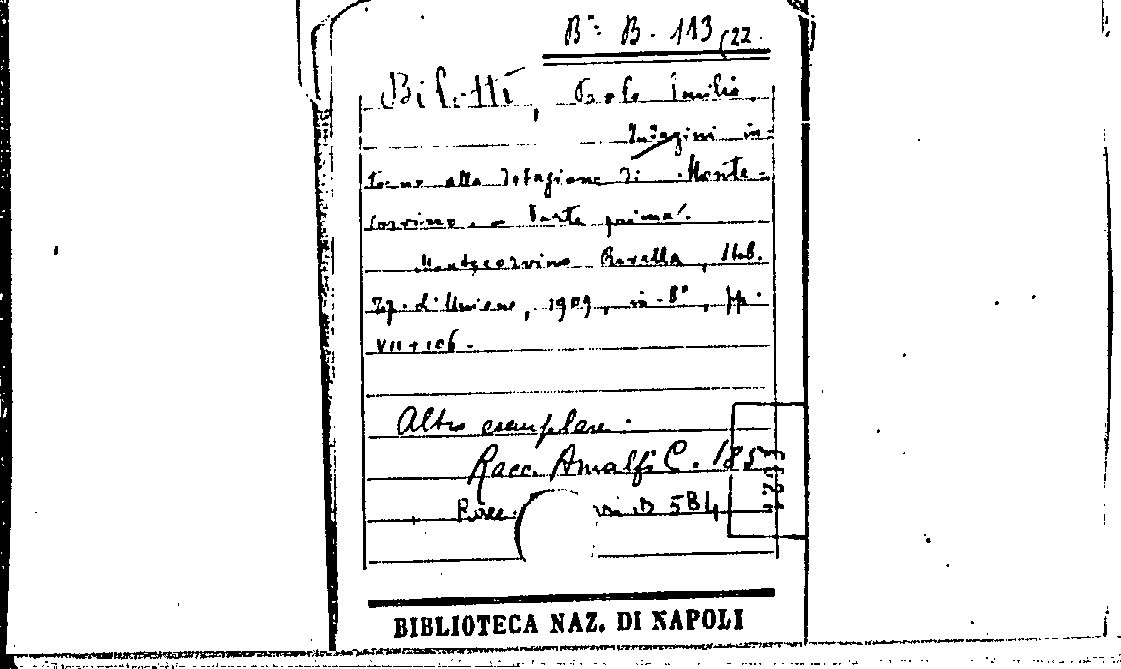 Bª. B. 113 (22.
Bilotti, Paolo Emilio.
Indagini in-
torno alla Defezione di Monte-
corvino. - Parte prima.
Montecorvino Rovella, Stab.
Tip. dell'Unione, 1909, in-8°, pp.
VII + 106.
Altro esemplare:
Racc. Amalfi C. 185
Racc. B 584
BIBLIOTECA NAZ. DI NAPOLI